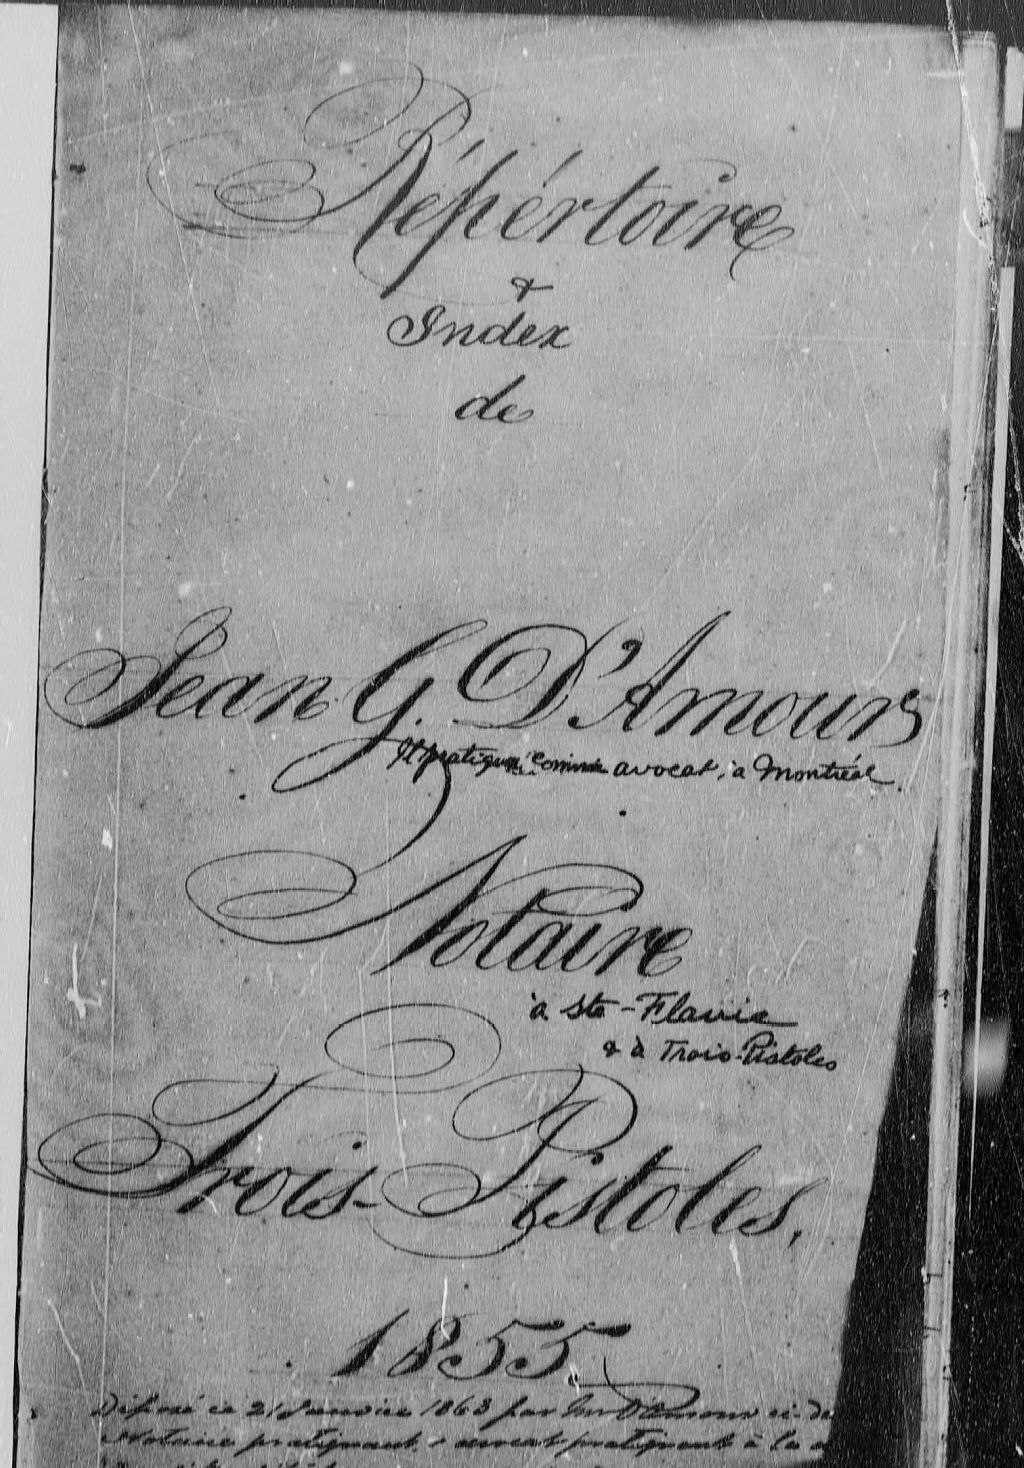 Répértoire
&
Index
de
Jean G. D'Amours
et pratiqua comme avocat, à Montréal.
Notaire
à Ste-Flavie
& à Trois-Pistoles
Trois-Pistoles,
1855.
Déposé ce 21 Janvier 1863 par Mr D'Amours ci-de
Notaire pratiquant & avocat pratiquant à la